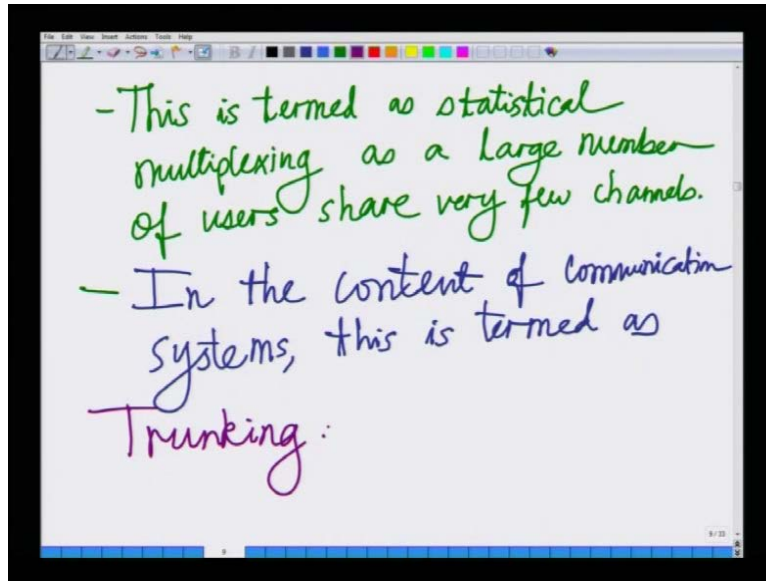 File Edit View Insert Actions Tools Help
B I
- This is termed as statistical
multiplexing as a Large number
of users share very few channels.
- In the content of communication
systems, this is termed as
Trunking :
9/33
9